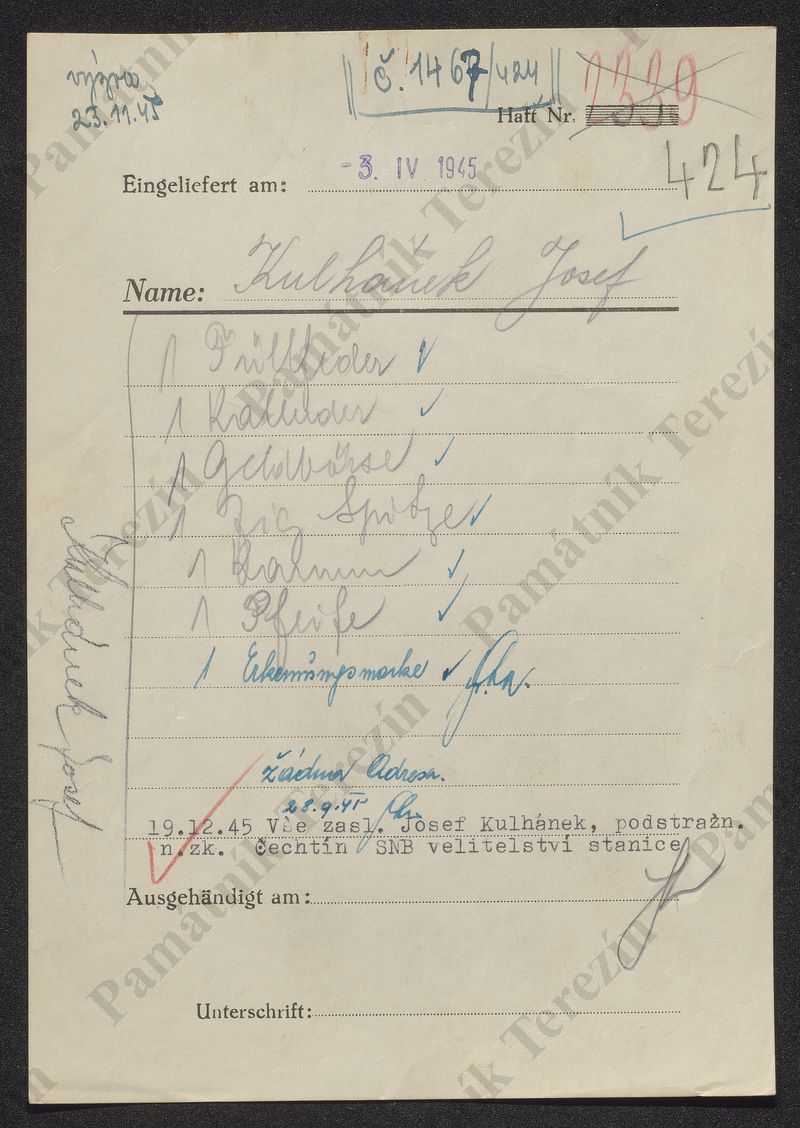 výzva
23.11.45
č. 1467/424
Haft Nr. 2339
424
Eingeliefert am: -3. IV 1945
Name: Kulhánek Josef
1 Füllfeder
1 Kalender
1 Geldbörse
1 Zig Spitze
1 Kamm
1 Pfeife
1 Erkennungsmarke
Kulhánek Josef
žádná Adresa.
28.9.45
19.12.45 Vše zasl. Josef Kulhánek, podstražn.
n.zk. Čechtín SNB velitelství stanice
Ausgehändigt am:
Unterschrift:
Památník Terezín